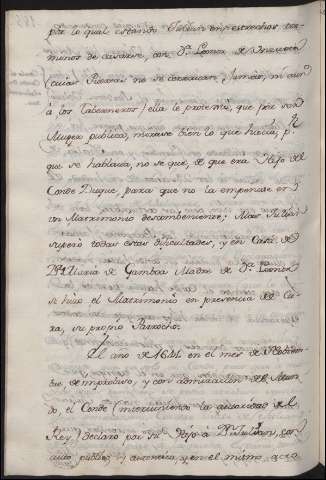 por lo qual estando Julian en estrechos ter-
minos de casarse, con Dª. Leonor de Unzueta
(cuias Puertas no se cerravan jamas, ni aun
á los Taberneros) ella le protestó, que por ser
Muger publica, mirase bien lo que hacia,
que se hablava, no se que, de que era Hijo del
Conde Duque, para que no la empeñase en
un Matrimonio desconbeniente; Mas Julian
superó todas estas dificultades, y en Casa de
Dª. Maria de Gamboa Madre de Dª. Leonor
se hizo el Matrimonio en presencia del Cu-
ra, su propio Parrocho.
El año de 1641 en el mes de
de improbiso, y con admiracion del Mun-
do, el Conde (interviniendo la autoridad del
Rey) declaró por su Hijo á Dn. Julian, con
auto publico y autentico, y en el mismo acto